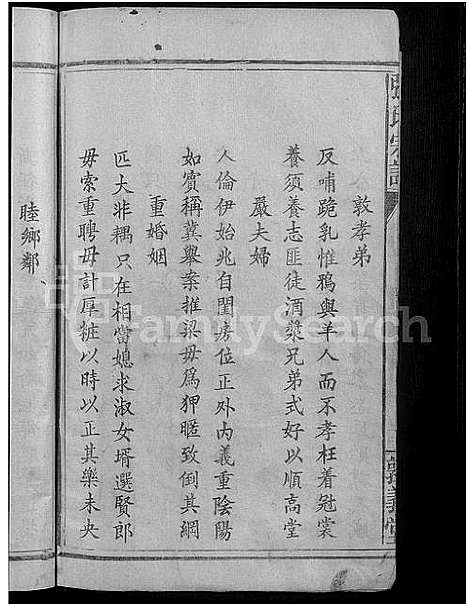 張氏宗譜
敦孝弟
反哺跪乳惟鴉與羊人而不孝枉着冠裳
養須養志匪徒酒漿兄弟式好以順高堂
嚴夫婦
人倫伊始兆自閨房位正外內義重陰陽
如賓稱冀舉案推梁毋爲狎暱致倒其綱
重婚姻
匹大非耦只在相當媳求淑女壻選賢郎
毋索重聘毋計厚粧以時以正其樂未央
睦鄉鄰
FamilySearch